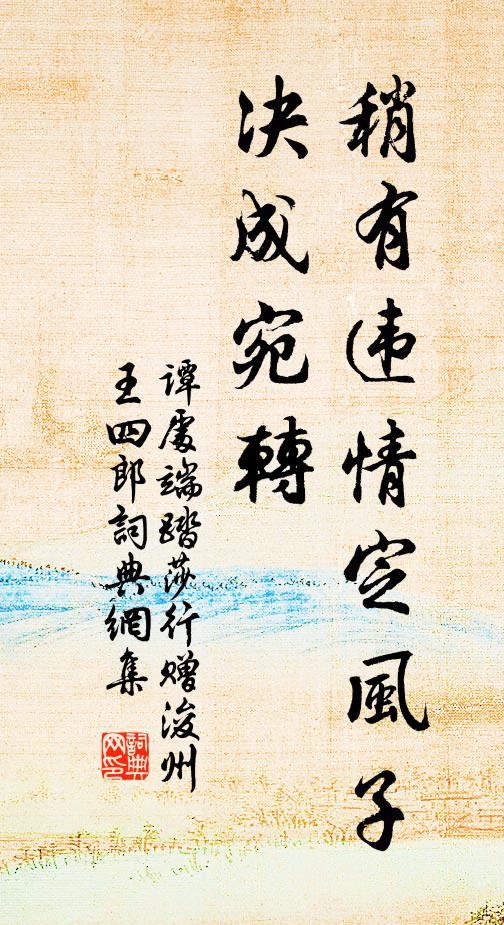 稍有违情定風子
決成宛轉
谭處端踏莎行赠浚州
王四郎詞典網集
詞典网印